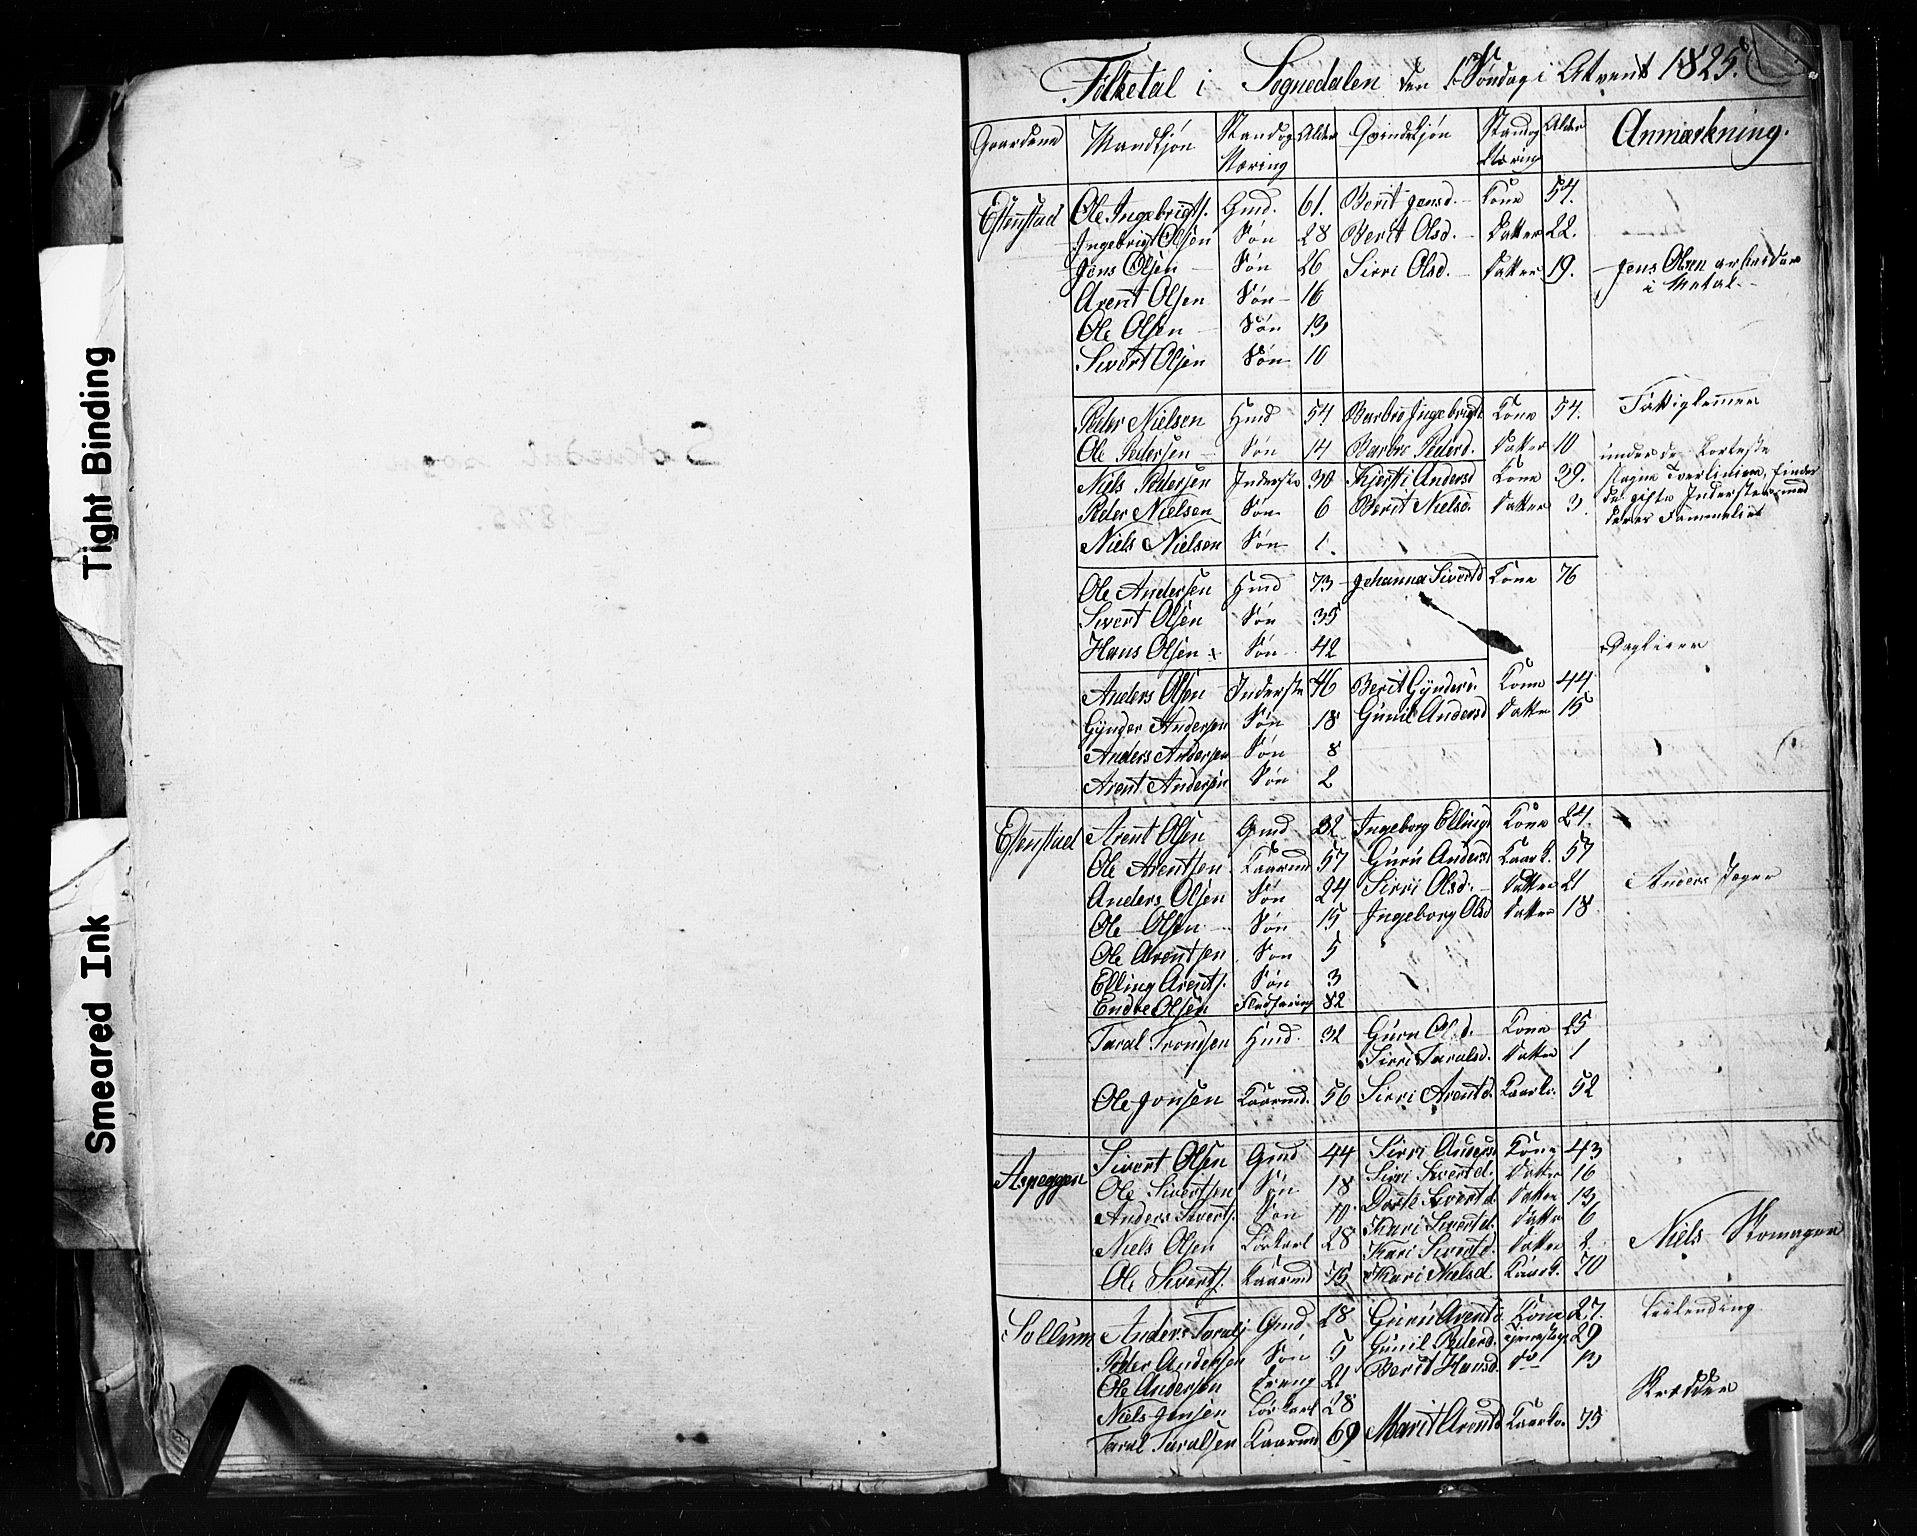 Tight Binding
Smeared Ink
Folketal i Sognedalen den 1ste Søndag i Atvent 1825.
Gaardene Mandkjøn Stand og Næring Alder Qvindekjøn Stand og Næring Alder Anmærkning.
Estenstad Ole Ingebrigts. Gmd. 61. Berit Jensd. Kone 54.
Ingebrigt Olsen Søn 28 Berit Olsd. Datter 22.
Jens Olsen Søn 26 Sirri Olsd. Datter 19. Jens Olsen arbeider
i Metal.
Arent Olsen Søn 16
Ole Olsen Søn 13
Sivert Olsen Søn 10
Peder Nielsen Hmd 54 Barbro Ingebrigtd Kone 54. Fattiglemmer
Ole Pedersen Søn 14 Barbro Pedersd. Datter 10 under de korteste
Niels Pedersen Inderste 30 Kjersti Andersd Kone 29. finder
Peder Nielsen Søn 6 Berit Nielsd. Datter 3. de gifte Inderster med
deres Fammeliet
Niels Nielsen Søn 1.
Ole Andersen Hmd 73 Johanna Sivertd Kone 76
Sivert Olsen Søn 35
Hans Olsen Søn 42 Dagleier
Anders Olsen Inderste 46 Berit Gynders. Kone 44
Gynder Andersen Søn 18 Gunil Andersd Datter 15
Anders Andersen Søn 8
Arent Andersen Søn 2
Estenstad Arent Olsen Gmd 32 Ingeborg Ellings Kone 24.
Ole Arentsen Kaarmd 57 Guru Andersd Kaark. 57
Anders Olsen Søn 24 Sirri Olsd. Datter 21 Anders Jæger
Ole Olsen Søn 15 Ingeborg Olsd Datter 18
Ole Arentsen Søn 5
Elling Arents. Søn 3
Endre Olsen Fledføring 82
Taral Trondsen Hmd. 32 Guru Olsd. Kone 25
Sirri Taralsd. Datter 1
Ole Jonsen Kaarmd. 56 Sirri Arentd. Kaarko. 52
Aspeggen Sivert Olsen Gmd 44 Sirri Anders Kone 43
Ole Sivertsen Søn 18 Sirri Sivertd. Datter 16
Anders Siverts. Søn 10 Dorte Sivertd Datter 13
Kari Sivertd. Datter 6
Niels Olsen Løskarl 28 Kari Sivertd. Datter 2. Niels Skomager
Ole Siverts. Kaarmd 75 Kari Nielsd Kaark. 70
Sollum Anders Tarals. Gmd 28 Guru Arentd Kone 27. Leilending
Peder Andersen Søn 5 Gunil Pedersd. Tjenestep. 29
Ole Andersen Dreng 21 Berit Hansd. do 13
Niels Jensen Løskarl 28 Skrædder
Taral Taralsen Kaarmd 69 Marit Arentd Kaarko. 75